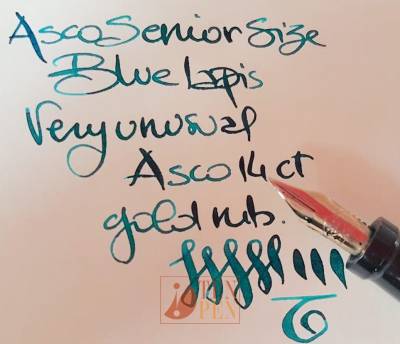 Asco Senior Size
Blue Lapis
Very unusual
Asco 14 ct
gold nib.
TEN
PEN